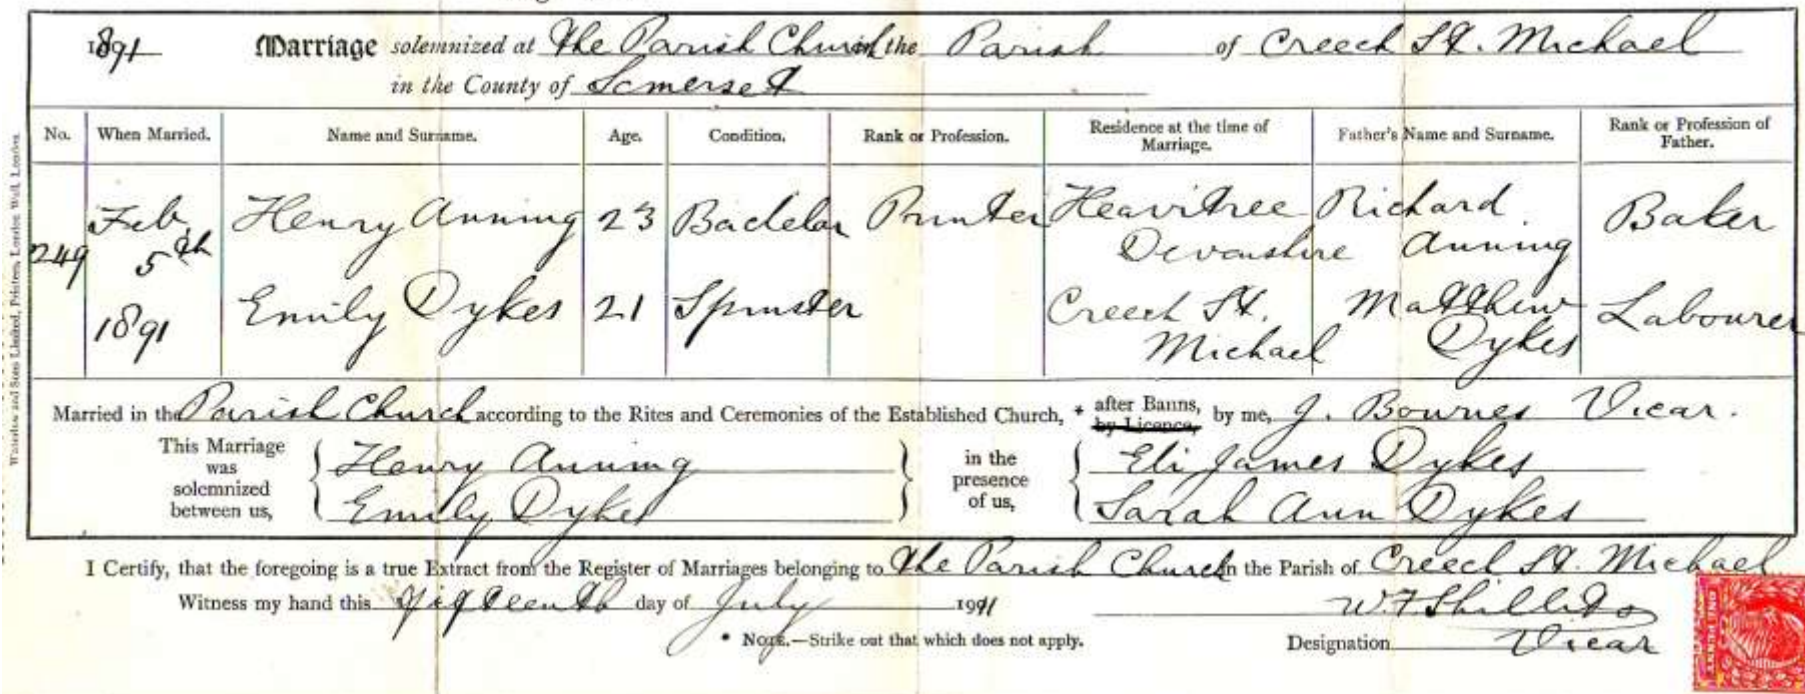 1891 Marriage solemnized at The Parish Church in the Parish of Creech St. Michael
in the County of Somerset
No. When Married. Name and Surname. Age. Condition. Rank or Profession. Residence at the time of Marriage. Father's Name and Surname. Rank or Profession of Father.
249 Feb 5th 1891
Henry Anning 23 Bachelor Printer Heavitree Devonshire Richard Anning Baker
Emily Dykes 21 Spinster Creech St. Michael Matthew Dykes Labourer
Married in the Parish Church according to the Rites and Ceremonies of the Established Church, * after Banns, by Licence, by me, J. Bownes Vicar.
This Marriage was solemnized between us, Henry Anning Emily Dykes in the presence of us, Eli James Dykes Sarah Ann Dykes
I Certify, that the foregoing is a true Extract from the Register of Marriages belonging to The Parish Church in the Parish of Creech St. Michael
Witness my hand this Fifteenth day of July W. F. Shillito
* NOTE.—Strike out that which does not apply. Designation Vicar
Waterlow and Sons Limited, Printers, London Wall, London.
ONE PENNY